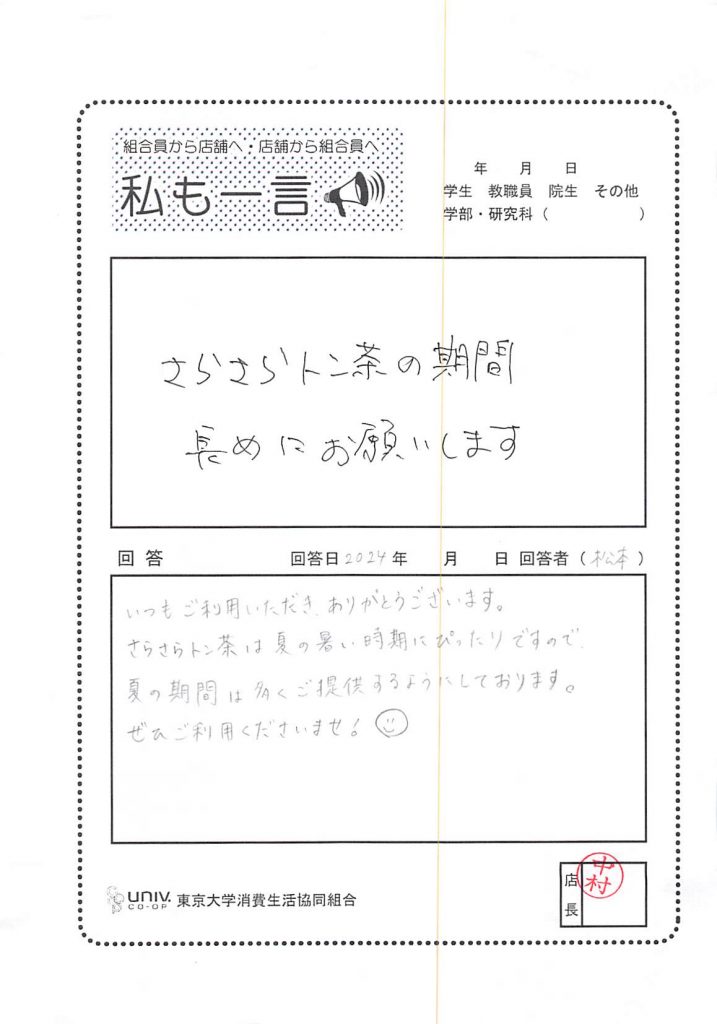 組合員から店舗へ・店舗から組合員へ
私も一言
年 月 日
学生 教職員 院生 その他
学部・研究科（ ）
さらさらトン茶の期間
長めにお願いします
回答 回答日2024年 月 日 回答者（松本）
いつもご利用いただき、ありがとうございます。
さらさらトン茶は夏の暑い時期にぴったりですので、
夏の期間は多くご提供するようにしております。
ぜひご利用くださいませ！
UNIV. CO-OP 東京大学消費生活協同組合
店長
中村